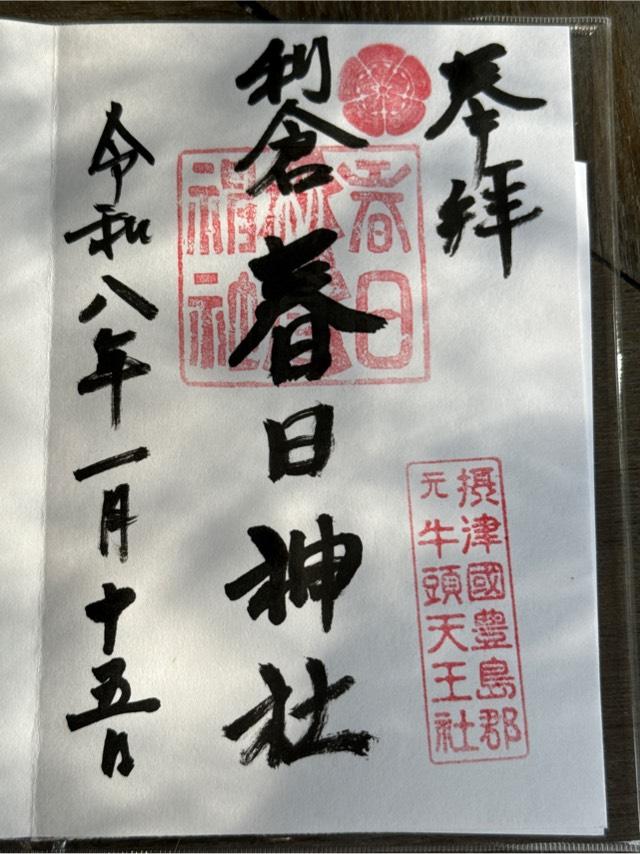 奉拝
利倉春日神社
令和八年一月十五日
春日
神社
摂津國豊島郡
元牛頭天王社